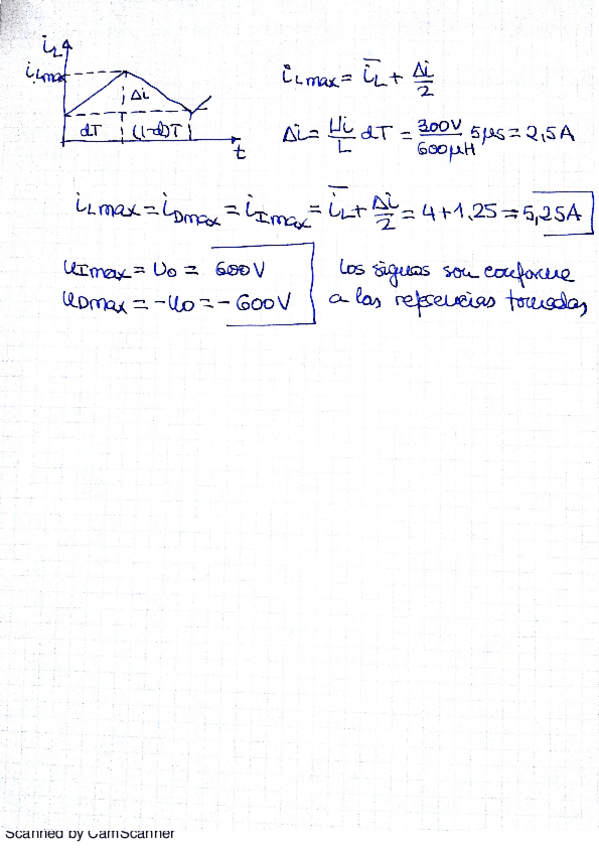 i_L
i_Lmax
Δi
dT (1-d)T
t
i_Lmax = i̅_L + Δi/2
Δi = Ui/L dT = 300V/600μH 5μs = 2,5A
i_Lmax = i_Dmax = i_Imax = i̅_L + Δi/2 = 4 + 1.25 = 5,25A
u_Imax = U_0 = 600V
u_Dmax = -U_0 = -600V
Los signos son conforme
a las referencias tomadas
Scanned by CamScanner